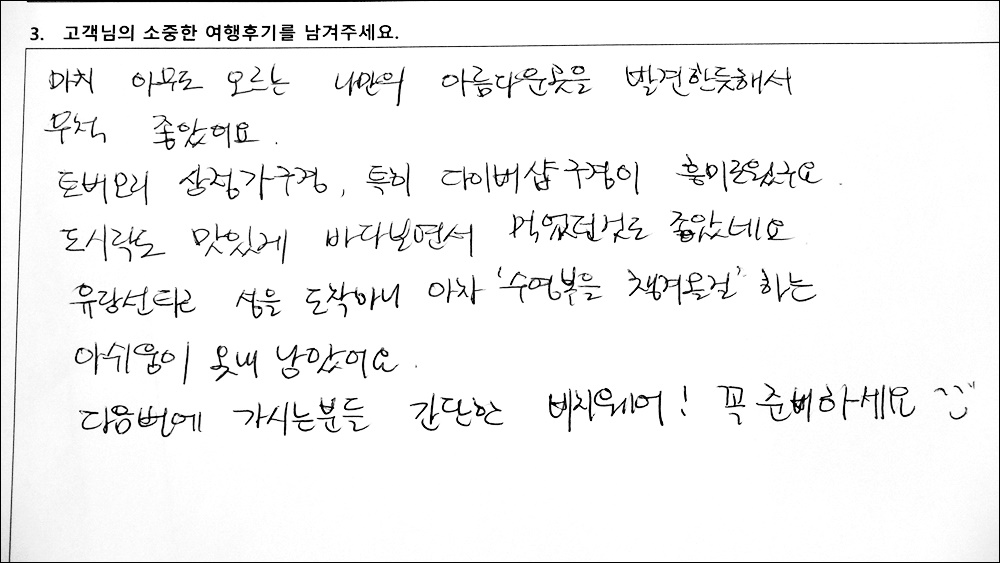 3. 고객님의 소중한 여행후기를 남겨주세요.
마치 아무도 모르는 나만의 아름다운곳을 발견한듯해서
무척 좋았어요.
토버모리 상점가구경, 특히 다이버샵구경이 흥미로웠구요.
도시락도 맛있게 바다보면서 먹었던것도 좋았네요
유람선타고 섬을 도착하니 아차 '수영복을 챙겨올걸' 하는
아쉬움이 못내 남았어요.
다음번에 가시는분들 간단한 비치웨어! 꼭 준비하세요 ^^